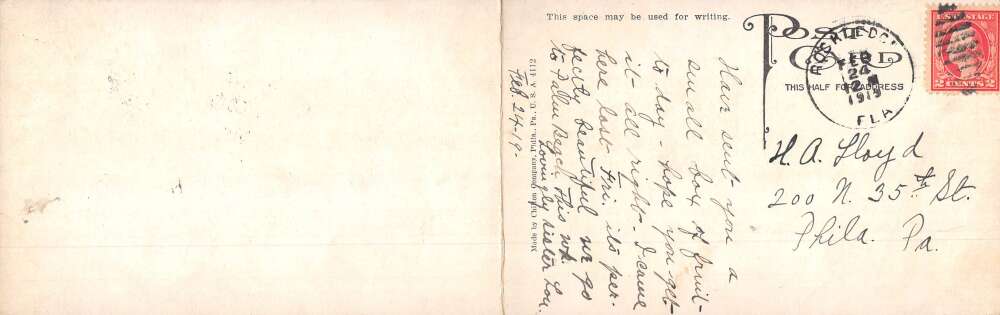 This space may be used for writing.
POST CARD
THIS HALF FOR ADDRESS
U.S. POSTAGE
2 CENTS 2
ROCKLEDGE
FEB
24
2 M
1919
FLA
H. A. Lloyd
200 N. 35th St.
Phila. Pa.
Have sent you a
small box of fruit-
to day - hope you get
it - all right - I came
here last Fri. its per-
fectly beautiful we go
to Palm Beach this wk.
Lovingly sister Lou.
Feb 24-19-
Made by Curteich Company, Phila., Pa., U. S. A. 4112